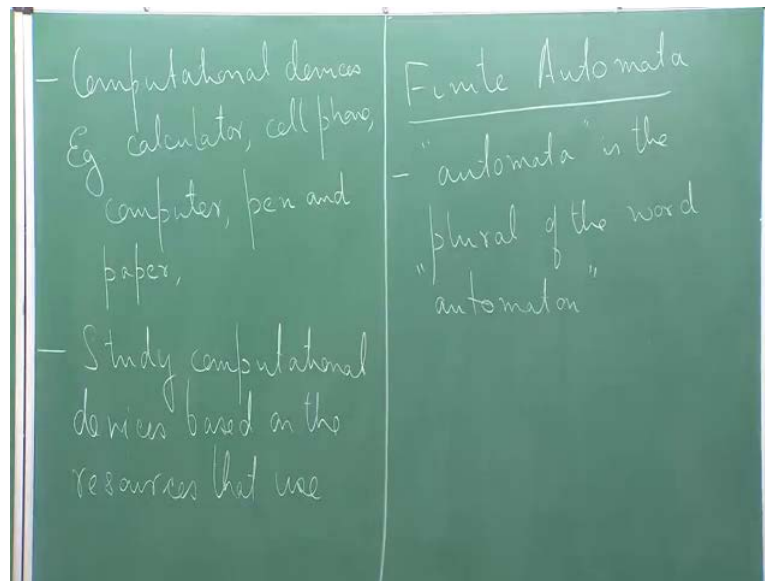 - Computational devices
Eg calculator, cell phone,
computer, pen and
paper,
- Study computational
devices based on the
resources that use
Finite Automata
- "automata" is the
plural of the word
"automaton"